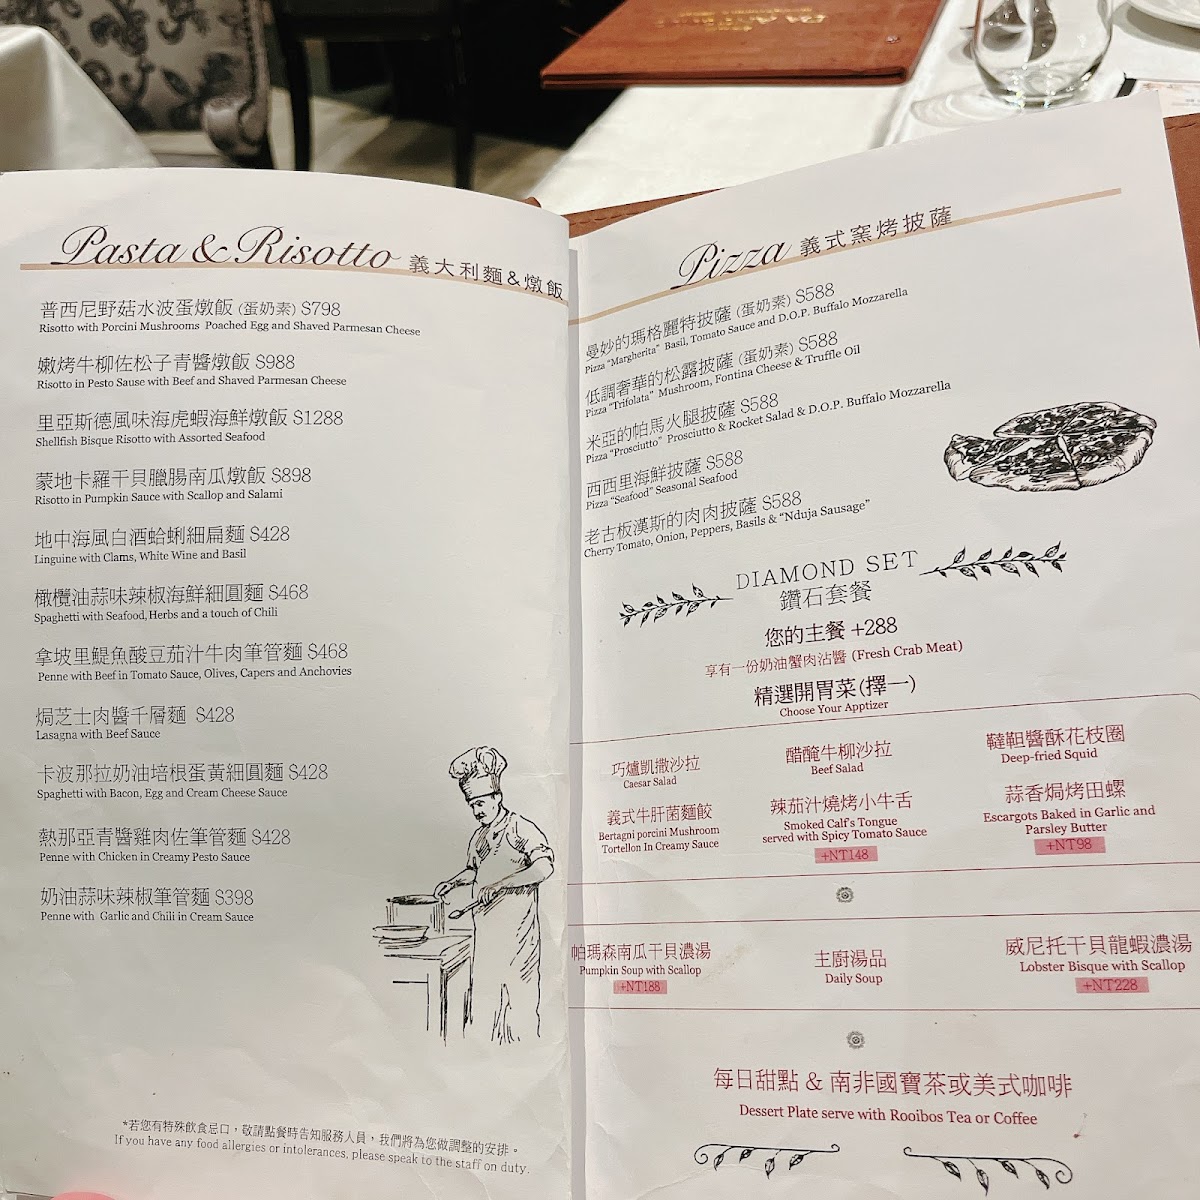 Pasta & Risotto 義大利麵&燉飯
普西尼野菇水波蛋燉飯 (蛋奶素) $798
Risotto with Porcini Mushrooms Poached Egg and Shaved Parmesan Cheese
嫩烤牛柳佐松子青醬燉飯 $988
Risotto in Pesto Sause with Beef and Shaved Parmesan Cheese
里亞斯德風味海虎蝦海鮮燉飯 $1288
Shellfish Bisque Risotto with Assorted Seafood
蒙地卡羅干貝臘腸南瓜燉飯 $898
Risotto in Pumpkin Sauce with Scallop and Salami
地中海風白酒蛤蜊細扁麵 $428
Linguine with Clams, White Wine and Basil
橄欖油蒜味辣椒海鮮細圓麵 $468
Spaghetti with Seafood, Herbs and a touch of Chili
拿坡里鯷魚酸豆茄汁牛肉筆管麵 $468
Penne with Beef in Tomato Sauce, Olives, Capers and Anchovies
焗芝士肉醬千層麵 $428
Lasagna with Beef Sauce
卡波那拉奶油培根蛋黃細圓麵 $428
Spaghetti with Bacon, Egg and Cream Cheese Sauce
熱那亞青醬雞肉佐筆管麵 $428
Penne with Chicken in Creamy Pesto Sauce
奶油蒜味辣椒筆管麵 $398
Penne with Garlic and Chili in Cream Sauce
*若您有特殊飲食忌口，敬請點餐時告知服務人員，我們將為您做調整的安排。
If you have any food allergies or intolerances, please speak to the staff on duty.
Pizza 義式窯烤披薩
曼妙的瑪格麗特披薩 (蛋奶素) $588
Pizza "Margherita" Basil, Tomato Sauce and D.O.P. Buffalo Mozzarella
低調奢華的松露披薩 (蛋奶素) $588
Pizza "Trifolata" Mushroom, Fontina Cheese & Truffle Oil
米亞的帕馬火腿披薩 $588
Pizza "Prosciutto" Prosciutto & Rocket Salad & D.O.P. Buffalo Mozzarella
西西里海鮮披薩 $588
Pizza "Seafood" Seasonal Seafood
老古板漢斯的肉肉披薩 $588
Cherry Tomato, Onion, Peppers, Basils & "Nduja Sausage"
DIAMOND SET
鑽石套餐
您的主餐 +288
享有一份奶油蟹肉沾醬 (Fresh Crab Meat)
精選開胃菜(擇一)
Choose Your Apptizer
巧爐凱撒沙拉
Caesar Salad
醋醃牛柳沙拉
Beef Salad
韃靼醬酥花枝圈
Deep-fried Squid
義式牛肝菌麵餃
Bertagni porcini Mushroom
Tortellon In Creamy Sauce
辣茄汁燒烤小牛舌
Smoked Calf's Tongue
served with Spicy Tomato Sauce
+NT148
蒜香焗烤田螺
Escargots Baked in Garlic and
Parsley Butter
+NT98
帕瑪森南瓜干貝濃湯
Pumpkin Soup with Scallop
+NT188
主廚湯品
Daily Soup
威尼托干貝龍蝦濃湯
Lobster Bisque with Scallop
+NT228
每日甜點 & 南非國寶茶或美式咖啡
Dessert Plate serve with Rooibos Tea or Coffee